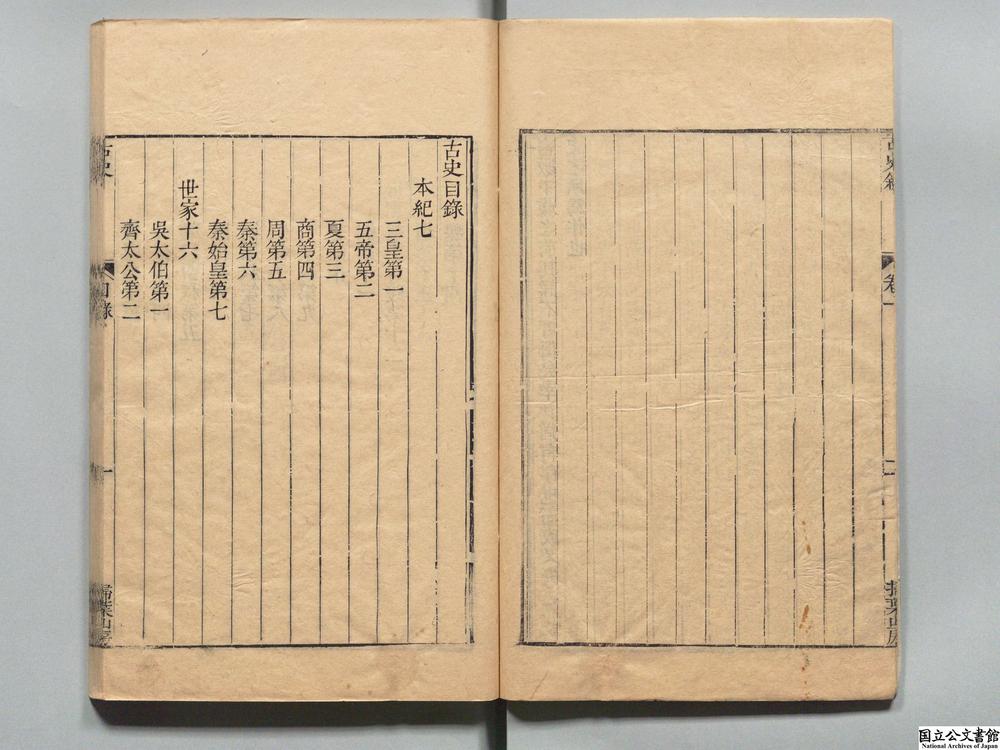 古史敘
卷一
二
掃葉山房
古史目錄
本紀七
三皇第一
五帝第二
夏第三
商第四
周第五
秦第六
秦始皇第七
世家十六
吳太伯第一
齊太公第二
古史
目錄
一
掃葉山房
国立公文書館
National Archives of Japan